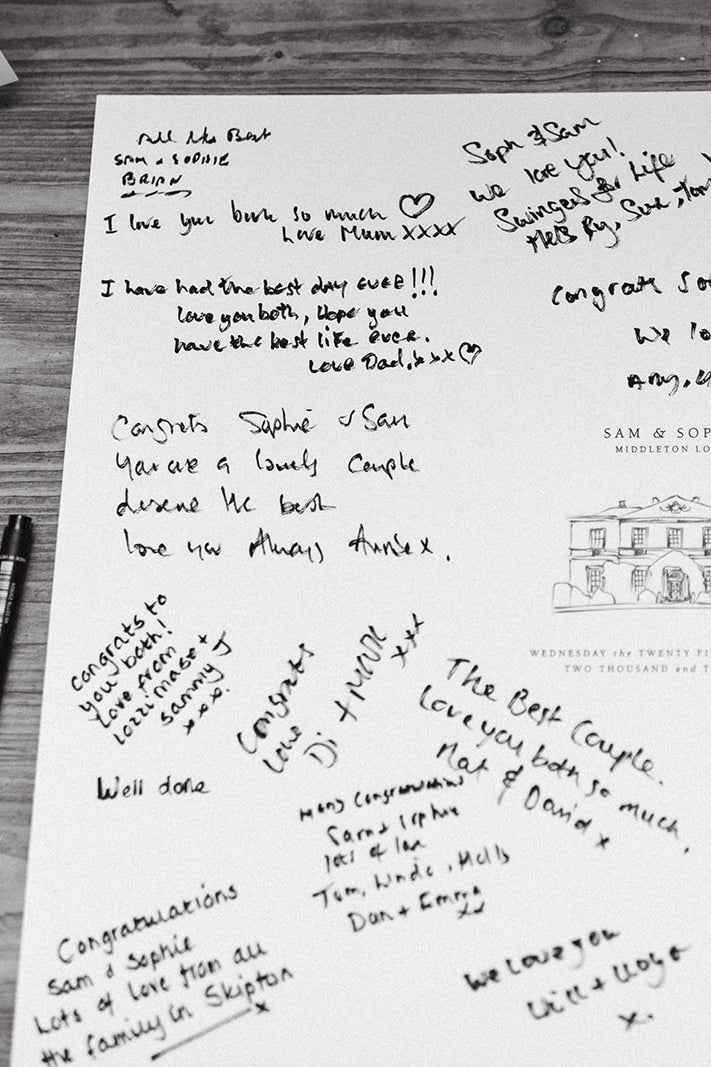 All the Best
SAM & SOPHIE
BRIAN
I love you both so much ♡
Love Mum xxxx
I have had the best day ever!!!
love you both, Hope you
have the best life ever.
Love Dad. xxx ♡
Congrats Sophie & Sam
You are a lovely couple
deserve the best
love you Always x.
Soph & Sam
We love you!
Swingers for Life
Sue, Tom
Congrats So
We lo
Amy,
SAM & SOP
MIDDLETON LO
WEDNESDAY the TWENTY FI
TWO THOUSAND and T
congrats to
you both!
Love from
sammy J
xxx.
Congrats
Love
Di + xxx
The Best Couple.
Love you both so much,
Nat & David x
Well done
Many Congratulations
Sam +
lots of love
Tom,
Dan + Emma
xx
Congratulations
Sam & Sophie
Lots of love from all
the family in Skipton
x
We Love you
Will +
x.